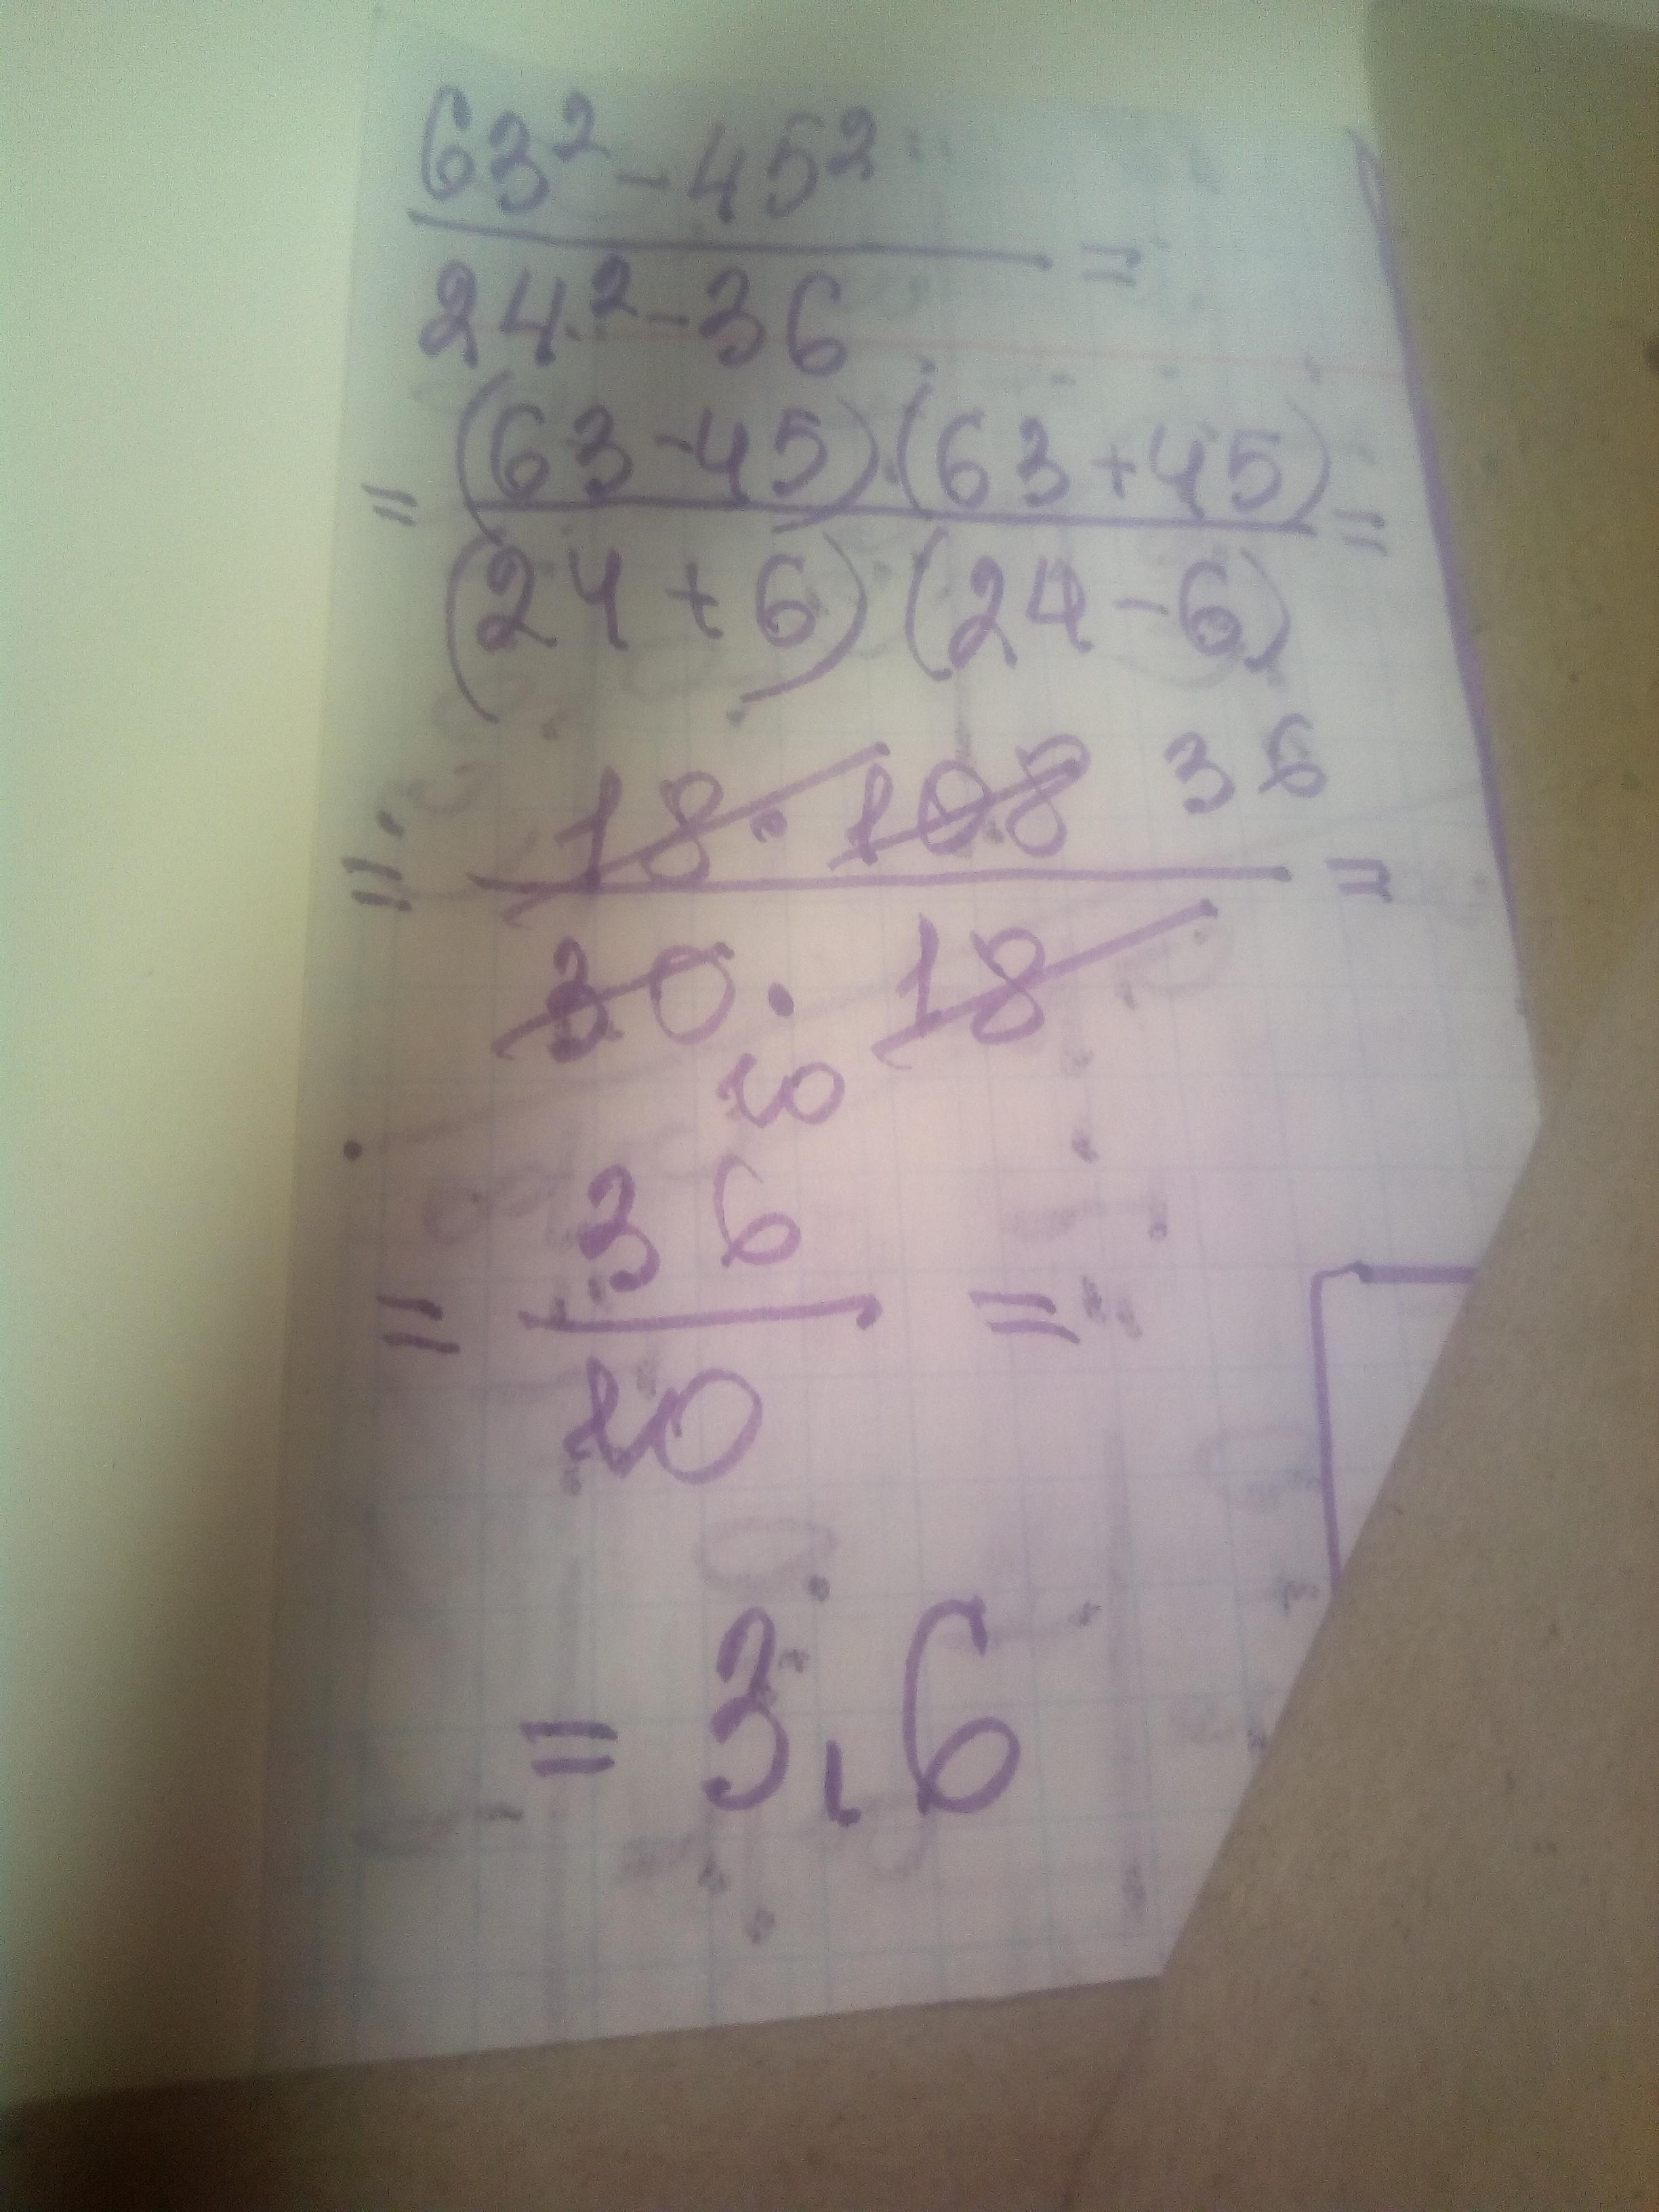 63² - 45²
24² - 36 =
= (63 - 45) · (63 + 45) =
(24 + 6) (24 - 6)
= 18 · 108 36 =
30 · 18
10
= 36 =
10
= 3,6